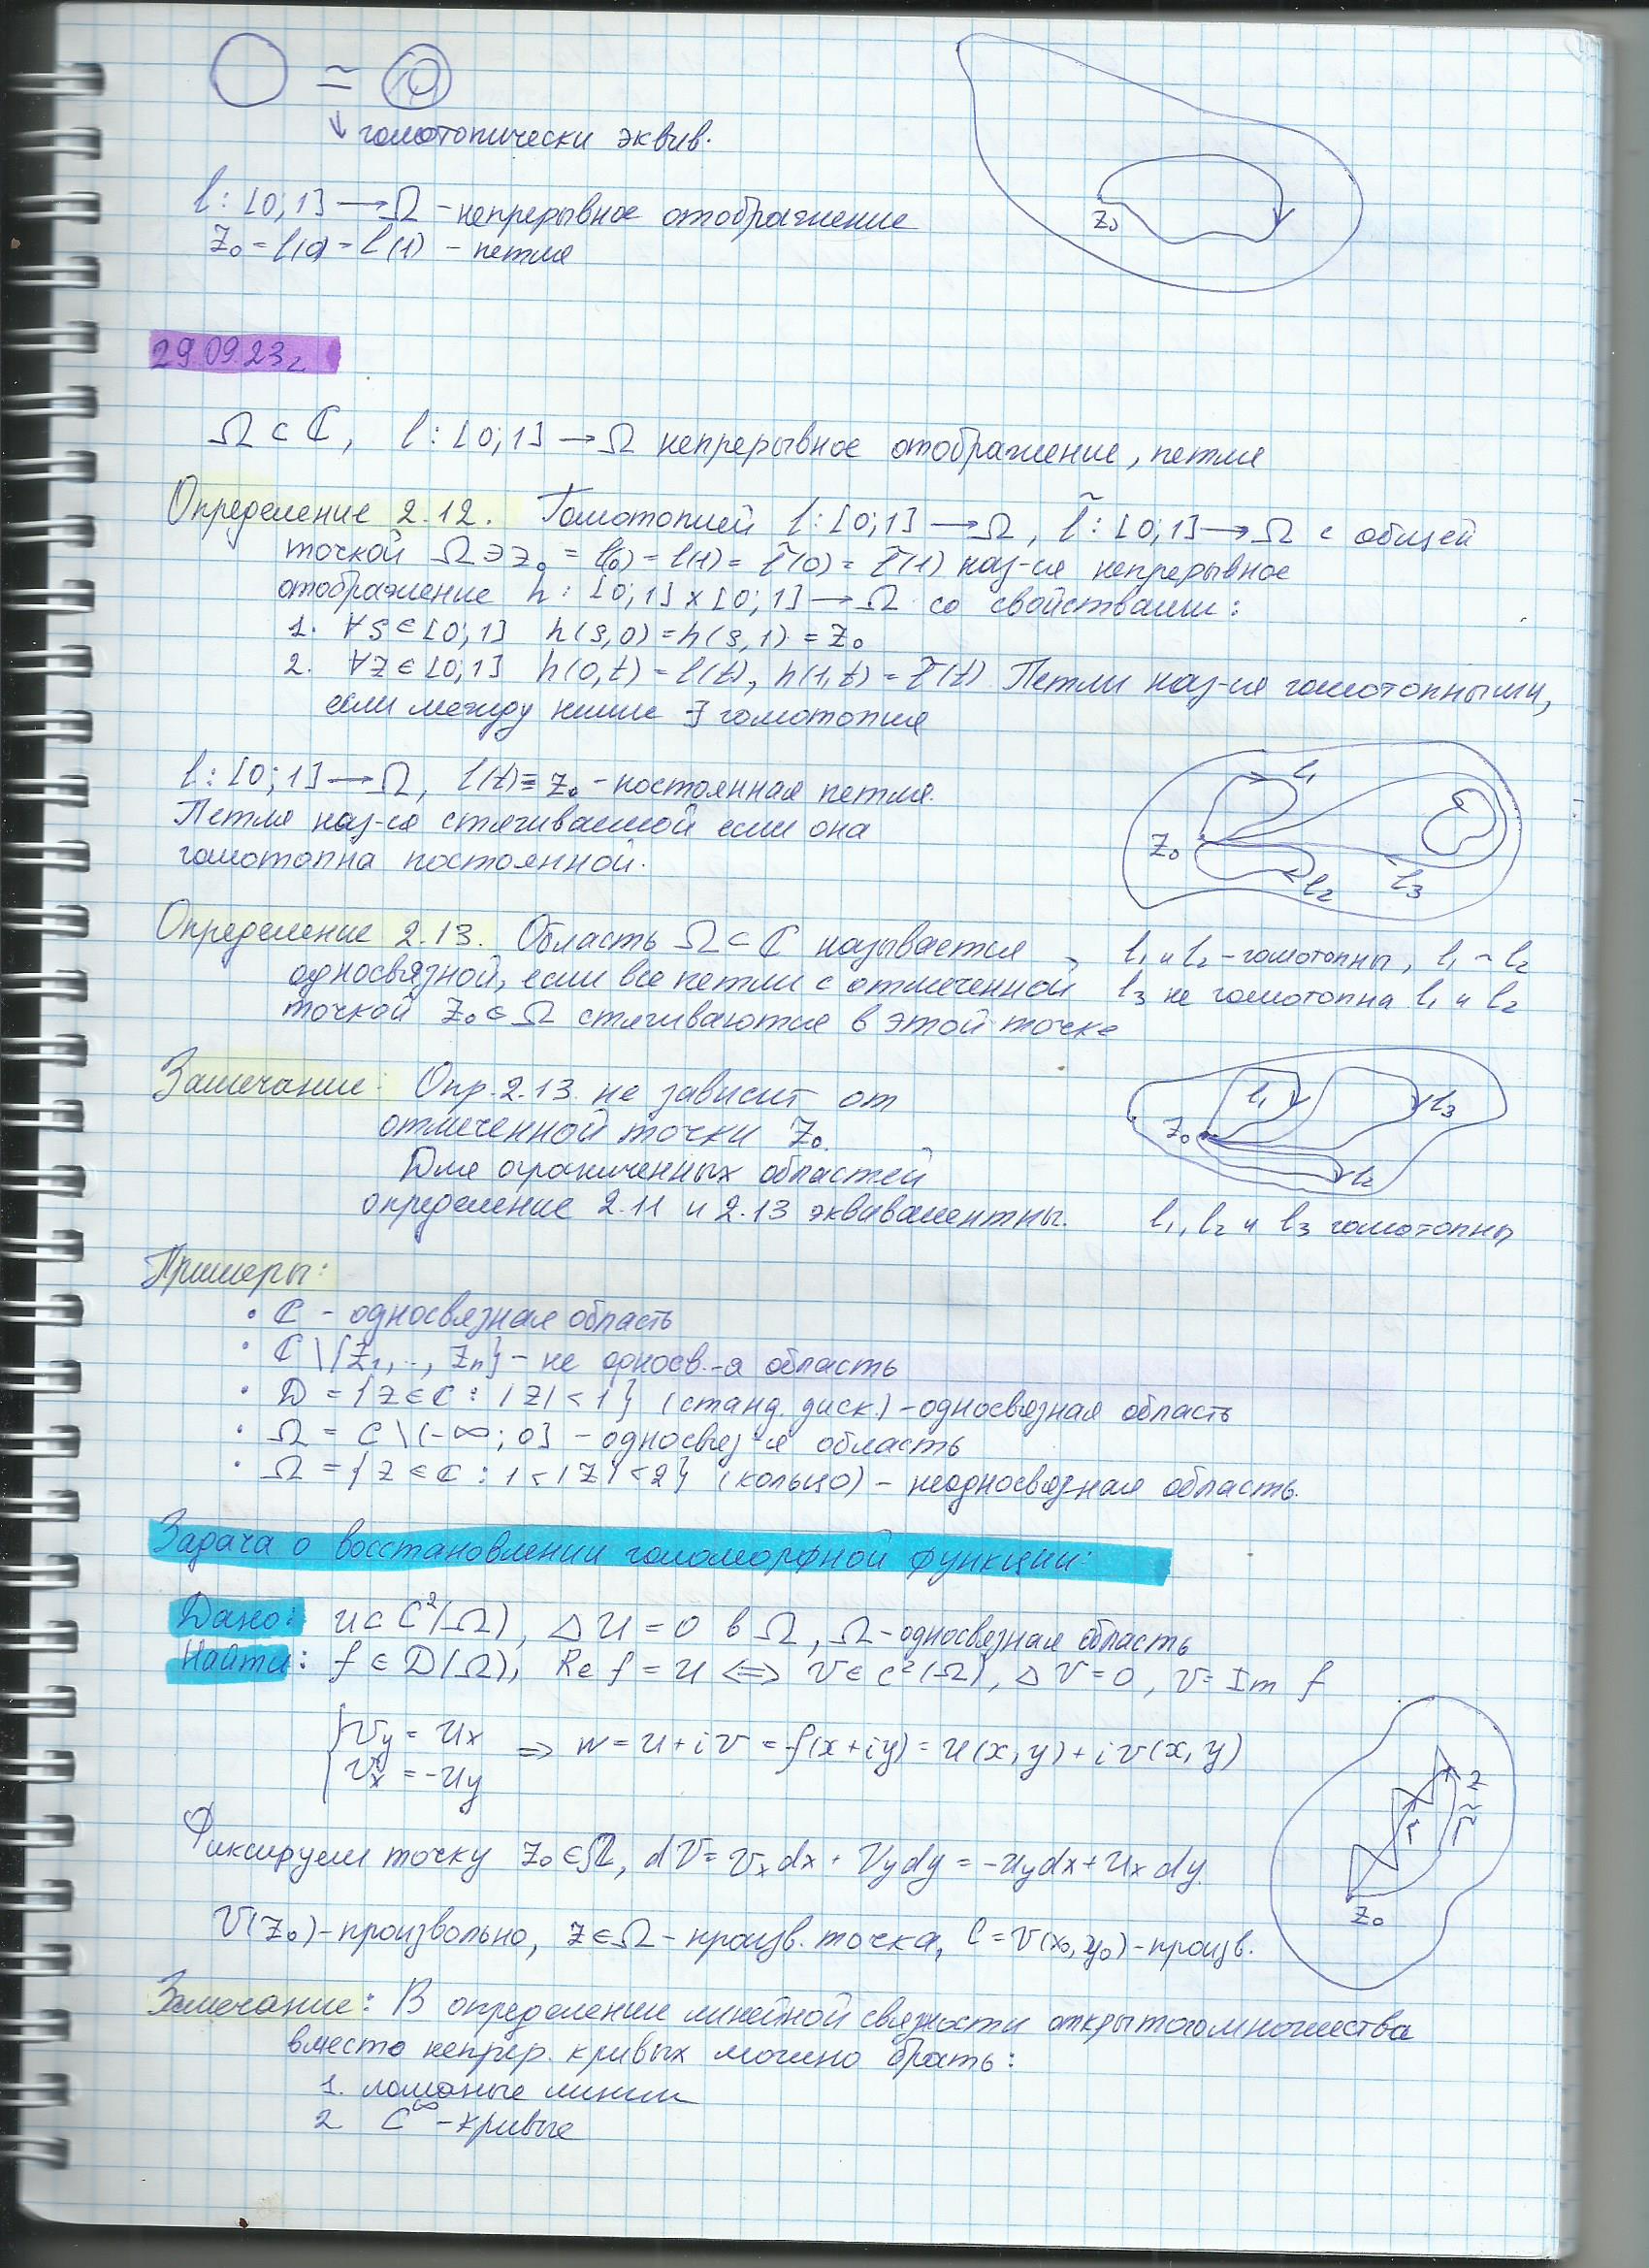 ≃
↓ гомотопически эквив.
l : [0;1] → Ω – непрерывное отображение
z₀ = l(0) = l(1) – петля
z₀
29.09.23г.
Ω ⊂ ℂ, l : [0;1] → Ω непрерывное отображение, петля
Определение 2.12. Гомотопией l : [0;1] → Ω, l̃ : [0;1] → Ω с общей
точкой Ω ∋ z₀ = l(0) = l(1) = l̃(0) = l̃(1) наз-ся непрерывное
отображение h : [0;1] × [0;1] → Ω со свойствами:
1. ∀s ∈ [0;1] h(s,0) = h(s,1) = z₀
2. ∀z ∈ [0;1] h(0,t) = l(t), h(1,t) = l̃(t) Петли наз-ся гомотопными,
если между ними ∃ гомотопия
l : [0;1] → Ω, l(t) ≡ z₀ – постоянная петля.
Петля наз-ся стягиваемой если она
гомотопна постоянной.
z₀ l₁ l₂ l₃
Определение 2.13. Область Ω ⊂ ℂ называется
односвязной, если все петли с отмеченной
точкой z₀ ∈ Ω стягиваются в этой точке
l₁ и l₂ – гомотопны, l₁ ~ l₂
l₃ не гомотопна l₁ и l₂
Замечание: Опр. 2.13. не зависит от
отмеченной точки z₀.
Для ограниченных областей
определение 2.11 и 2.13 эквивалентны.
z₀ l₁ l₃ l₂
l₁, l₂ и l₃ гомотопны
Примеры:
• ℂ – односвязная область
• ℂ \ {z₁, .., zₙ} – не односв.-я область
• D = {z ∈ ℂ : |z| < 1} (станд. диск.) – односвязная область
• Ω = ℂ \ (-∞; 0] – односвяз-я область
• Ω = {z ∈ ℂ : 1 < |z| < 2} (кольцо) – неодносвязная область.
Задача о восстановлении голоморфной функции:
Дано: u ⊂ C²(Ω), Δu = 0 в Ω, Ω – односвязная область
Найти: f ∈ D(Ω), Re f = u ⟺ v ∈ C²(Ω), Δv = 0, v = Im f
{ v_y = u_x
v_x = -u_y ⇒ w = u + iv = f(x+iy) = u(x,y) + iv(x,y)
Фиксируем точку z₀ ∈ Ω, dv = v_x dx + v_y dy = -u_y dx + u_x dy.
z Γ Γ̃ z₀
v(z₀) – произвольно, z ∈ Ω – произв. точка, C = v(x₀, y₀) – произв.
Замечание: В определении линейной связности открытого множества
вместо непрер. кривых можно брать:
1. ломаные линии
2 C^∞ – кривые